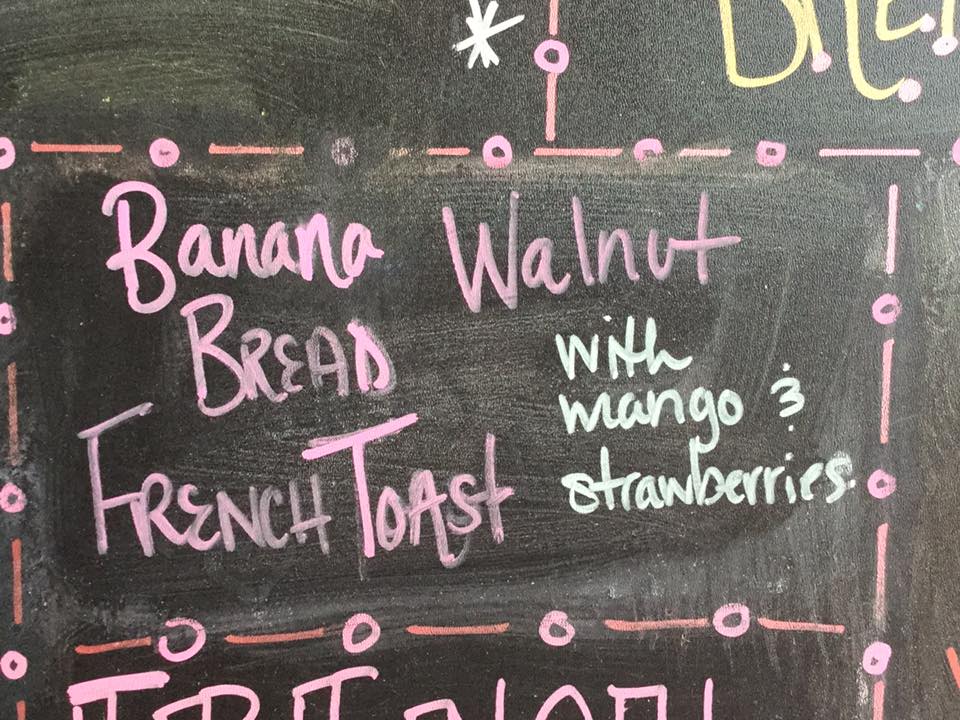 Banana Walnut
BREAD
FRENCH TOAST
with
mango &
strawberries.